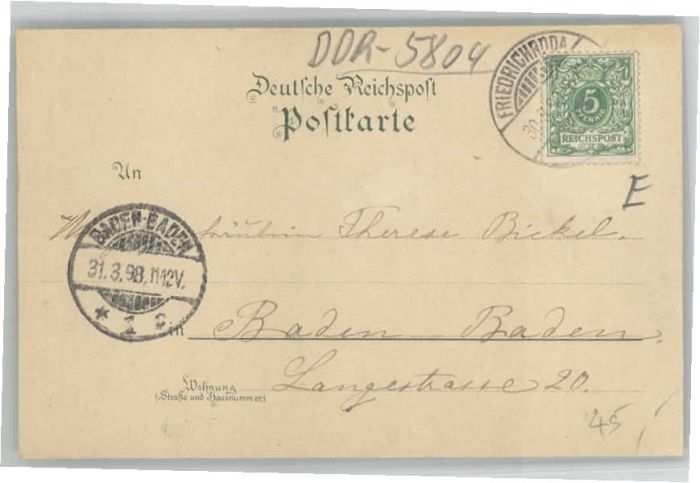 DDR-5804
Deutsche Reichspost
Postkarte
FRIEDRICHRODA
30
5
PFENNIG
REICHSPOST
E
An
Fräulein Therese Bickel.
BADEN-BADEN
31.3.98.11-12V.
* 1 c
in Baden Baden.
Wohnung
(Straße und Hausnummer)
Langestrasse 20.
45,-